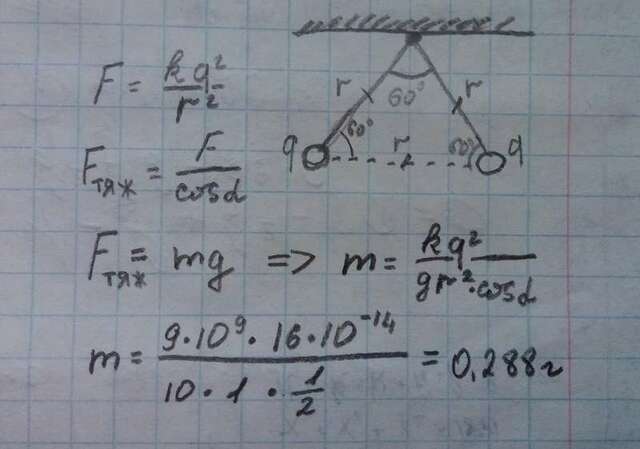 F = kq²/r²
Fтяж = F/cosα
Fтяж = mg => m = kq²/gr²·cosα
m = 9·10⁹·16·10⁻¹⁴/10·1·1/2 = 0,288г
r 60° r
q 60° r 60° q